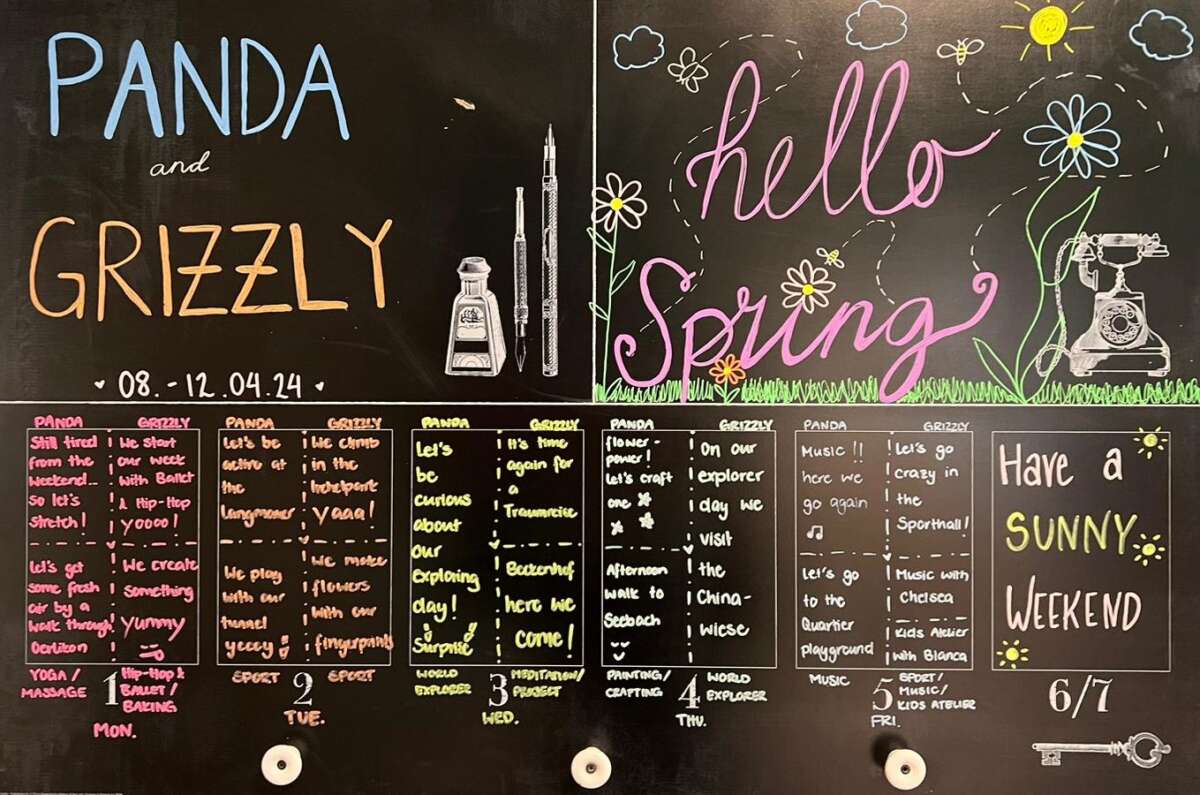 PANDA
and
GRIZZLY
08. - 12.04.24
hello
Spring
PANDA
Still tired
from the
weekend...
so let's
stretch!
Let's get
some fresh
air by a
walk through
Oerlikon
GRIZZLY
We start
our week
with Ballet
& Hip-Hop
yoooo!
We create
something
yummy
YOGA /
MASSAGE
1
HIP-HOP &
BALLET /
BAKING
MON.
PANDA
Let's be
active at
the
Langmauer
We play
with our
tunnel
yeeey
GRIZZLY
We climb
in the
yaaa!
We make
flowers
with our
fingerprints
SPORT
2
SPORT
TUE.
PANDA
Let's
be
curious
about
our
exploring
day!
Surprise
GRIZZLY
It's time
again for
a
Traumreise
Beckenhof
here we
come!
WORLD
EXPLORER
3
MEDITATION/
PROJECT
WED.
PANDA
flower-
power!
Let's craft
one
Afternoon
walk to
Seebach
GRIZZLY
On our
explorer
day we
visit
the
China-
wiese
PAINTING/
CRAFTING
4
WORLD
EXPLORER
THU.
PANDA
Music!!
here we
go again
Let's go
to the
Quartier
playground
GRIZZLY
Let's go
crazy in
the
Sporthall!
Music with
Chelsea
Kids Atelier
with Bianca
MUSIC
5
SPORT/
MUSIC/
KIDS ATELIER
FRI.
Have a
SUNNY
WEEKEND
6/7